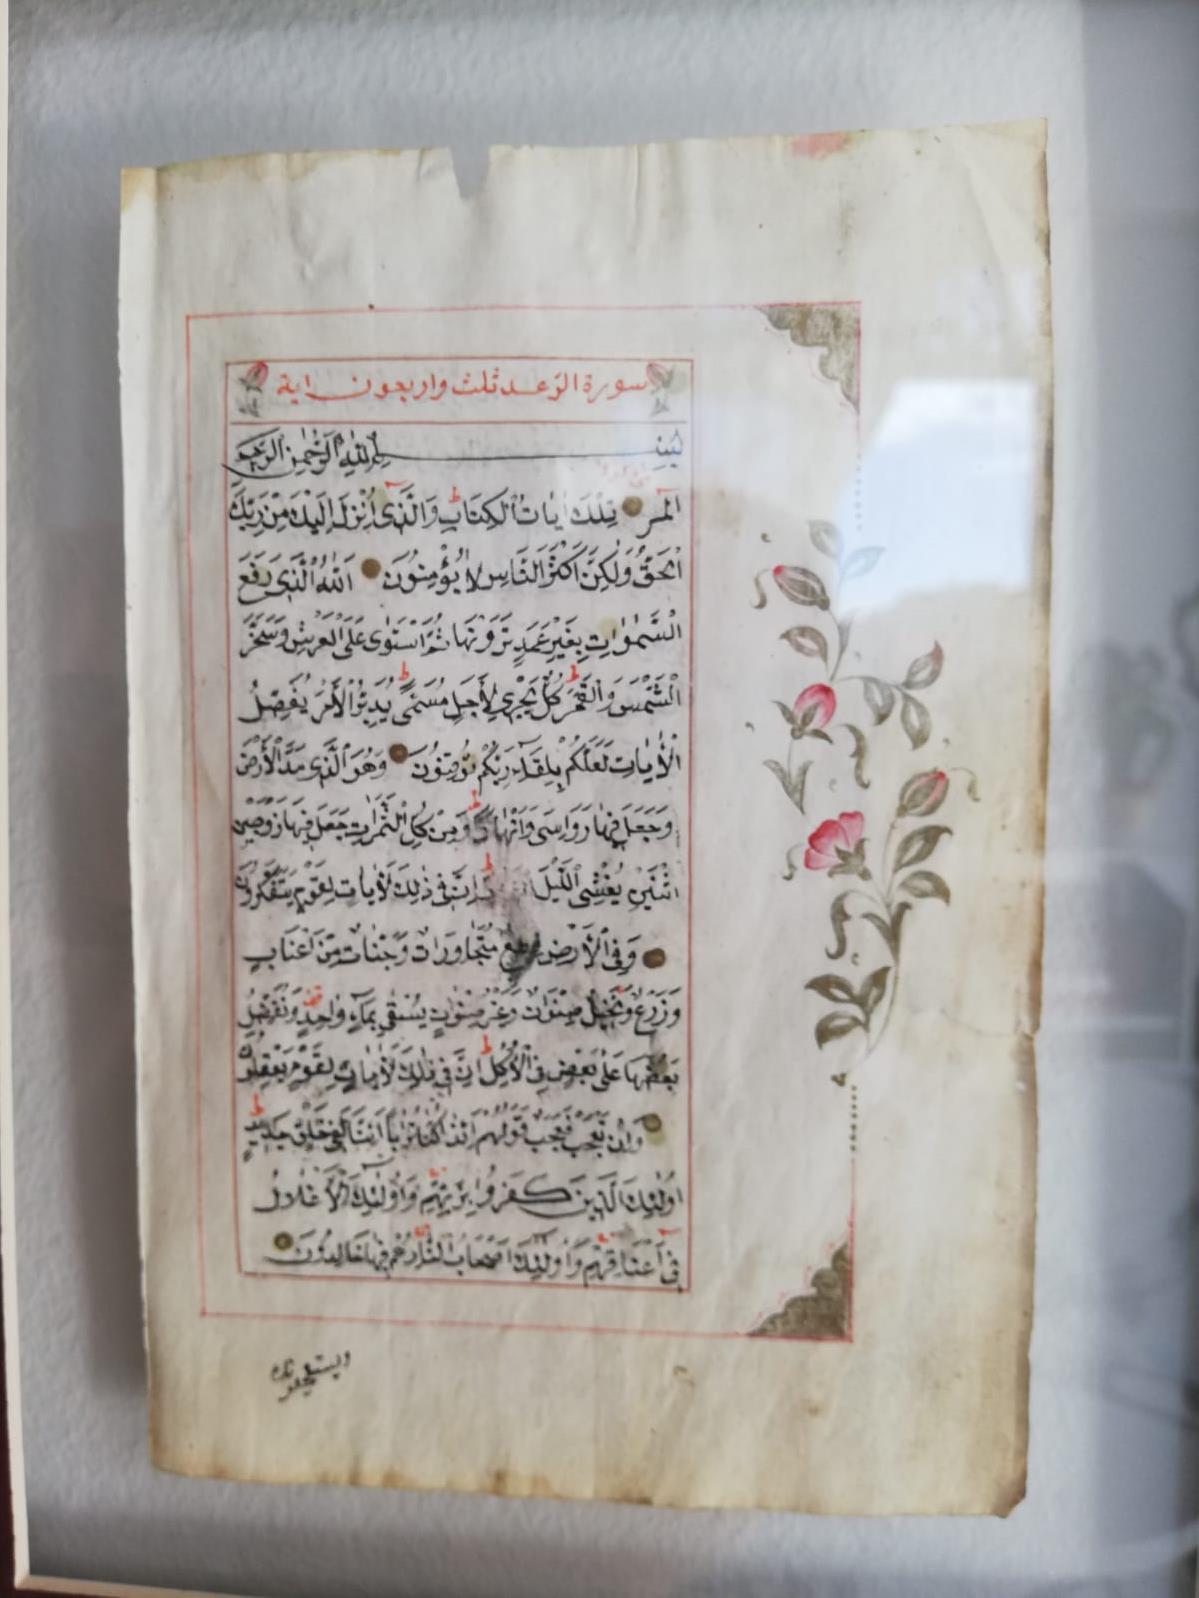 سورة الرّعد ثلث واربعون اية
بِسْمِ اللهِ الرَّحْمٰنِ الرَّحِيمِ
الٓمٓر تِلْكَ اٰيَاتُ الْكِتَابِ وَالَّذِىٓ اُنْزِلَ اِلَيْكَ مِنْ رَبِّكَ
الْحَقُّ وَلٰكِنَّ اَكْثَرَ النَّاسِ لَا يُؤْمِنُونَ اَللهُ الَّذِى رَفَعَ
السَّمٰوَاتِ بِغَيْرِ عَمَدٍ تَرَوْنَهَا ثُمَّ اسْتَوٰى عَلَى الْعَرْشِ وَسَخَّرَ
الشَّمْسَ وَالْقَمَرَ ط كُلٌّ يَجْرِى لِأَجَلٍ مُسَمًّى ط يُدَبِّرُ الْأَمْرَ يُفَصِّلُ
الْاٰيَاتِ لَعَلَّكُمْ بِلِقَاءِ رَبِّكُمْ تُوقِنُونَ وَهُوَ الَّذِى مَدَّ الْأَرْضَ
وَجَعَلَ فِيهَا رَوَاسِىَ وَاَنْهَارًا ط وَمِنْ كُلِّ الثَّمَرَاتِ جَعَلَ فِيهَا زَوْجَيْنِ
اثْنَيْنِ يُغْشِى الَّيْلَ ط اِنَّ فِى ذٰلِكَ لَاٰيَاتٍ لِقَوْمٍ يَتَفَكَّرُونَ
وَفِى الْأَرْضِ مُتَجَاوِرَاتٌ وَجَنَّاتٌ مِنْ اَعْنَابٍ
وَزَرْعٌ وَنَخِيلٌ صِنْوَانٌ وَغَيْرُ صِنْوَانٍ يُسْقٰى بِمَاءٍ وَاحِدٍ وَنُفَضِّلُ
بَعْضَهَا عَلٰى بَعْضٍ فِى الْأُكُلِ ط اِنَّ فِى ذٰلِكَ لَاٰيَاتٍ لِقَوْمٍ يَعْقِلُونَ
وَاِنْ تَعْجَبْ فَعَجَبٌ قَوْلُهُمْ ءَاِذَا كُنَّا تُرَابًا ءَاِنَّا لَفِى خَلْقٍ جَدِيدٍ ط
اُولٰئِكَ الَّذِينَ كَفَرُوا بِرَبِّهِمْ وَاُولٰئِكَ الْأَغْلَالُ
فِىٓ اَعْنَاقِهِمْ وَاُولٰئِكَ اَصْحَابُ النَّارِ هُمْ فِيهَا خَالِدُونَ
ويستعجلونك